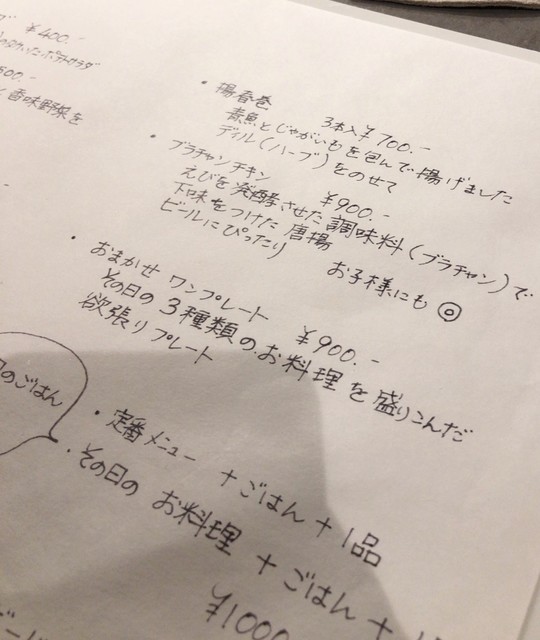 ¥400.-
ポテトサラダ
500.-
香味野菜を
・揚春巻 3本入¥700.-
青魚とじゃがいもを包んで揚げました
ディル(ハーブ)をのせて
・ブラチャンチキン ¥900.-
えびを発酵させた調味料(ブラチャン)で
下味をつけた唐揚
ビールにぴったり お子様にも◎
・おまかせ ワンプレート ¥900.-
その日の3種類のお料理を盛りこんだ
欲張りプレート
のごはん
・定番メニュー +ごはん+1品
・その日の お料理 +ごはん+
¥1000